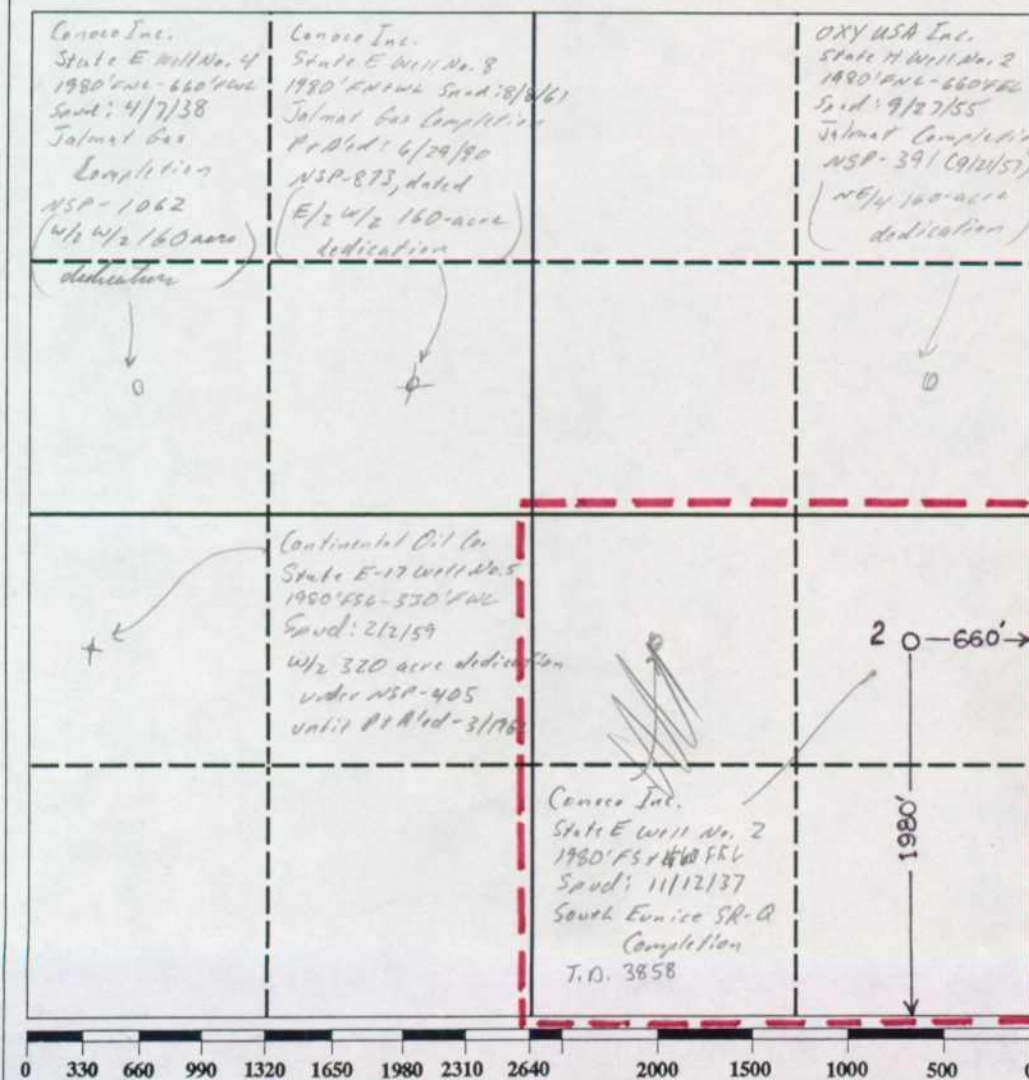 Conoco Inc.
State E Well No. 4
1980'FNL-660'FWL
Spud: 4/7/38
Jalmat Gas
Completion
NSP-1062
(W/2 W/2 160 acre)
dedication
Conoco Inc.
State E Well No. 8
1980'FN+WL Spud: 8/8/61
Jalmat Gas Completion
P+A'ed: 6/29/90
NSP-873, dated
(E/2 W/2 160-acre
dedication)
OXY USA Inc.
State H Well No. 2
1980'FNL-660'FEL
Spud: 9/27/55
Jalmat Completion
NSP-391 (9/21/57)
(NE/4 160-acre
dedication)
Continental Oil Co.
State E-17 Well No. 5
1980'FSL-330'FWL
Spud: 2/2/59
W/2 320 acre dedication
under NSP-405
until P+A'ed-3/196
2
660'
1980'
Conoco Inc.
State E Well No. 2
1980'FS+660 FEL
Spud: 11/12/37
South Eunice SR-Q
Completion
T.D. 3858
0 330 660 990 1320 1650 1980 2310 2640 2000 1500 1000 500 0